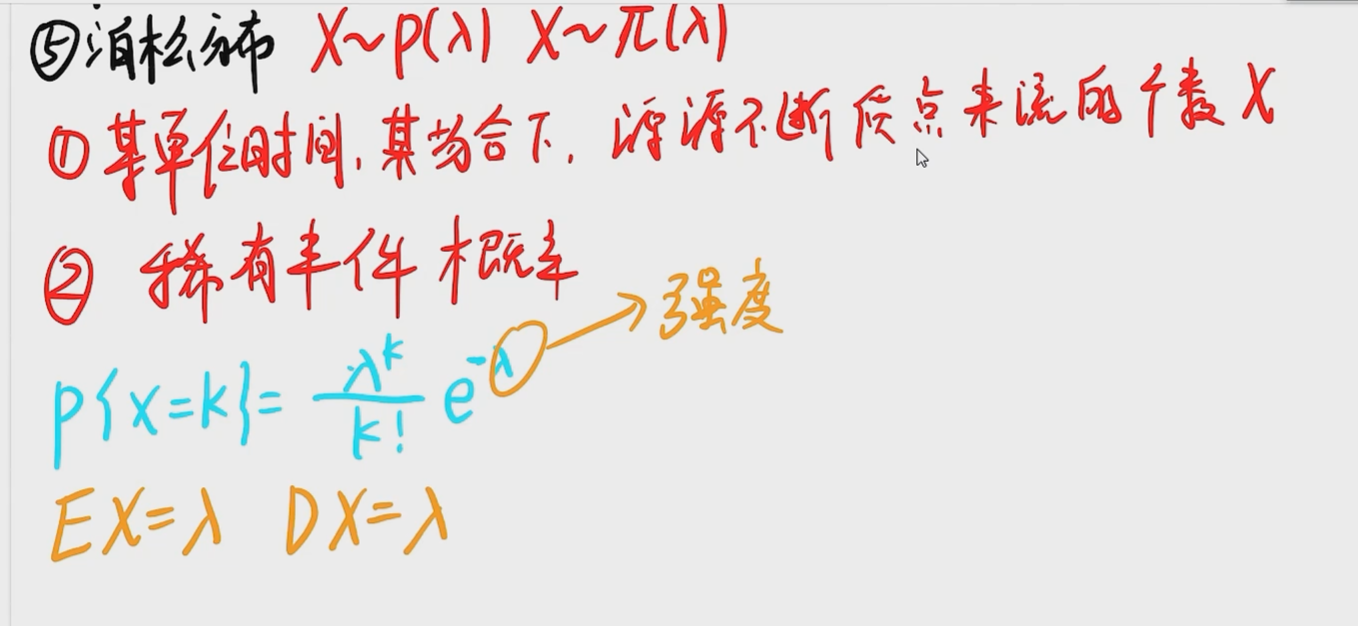 ⑤泊松分布 X~P(λ) X~π(λ)
①某单位时间,某场合下,源源不断质点来流的个数X
② 稀有事件概率
P{X=k}= λ^k/k! e^-λ → 强度
EX=λ DX=λ